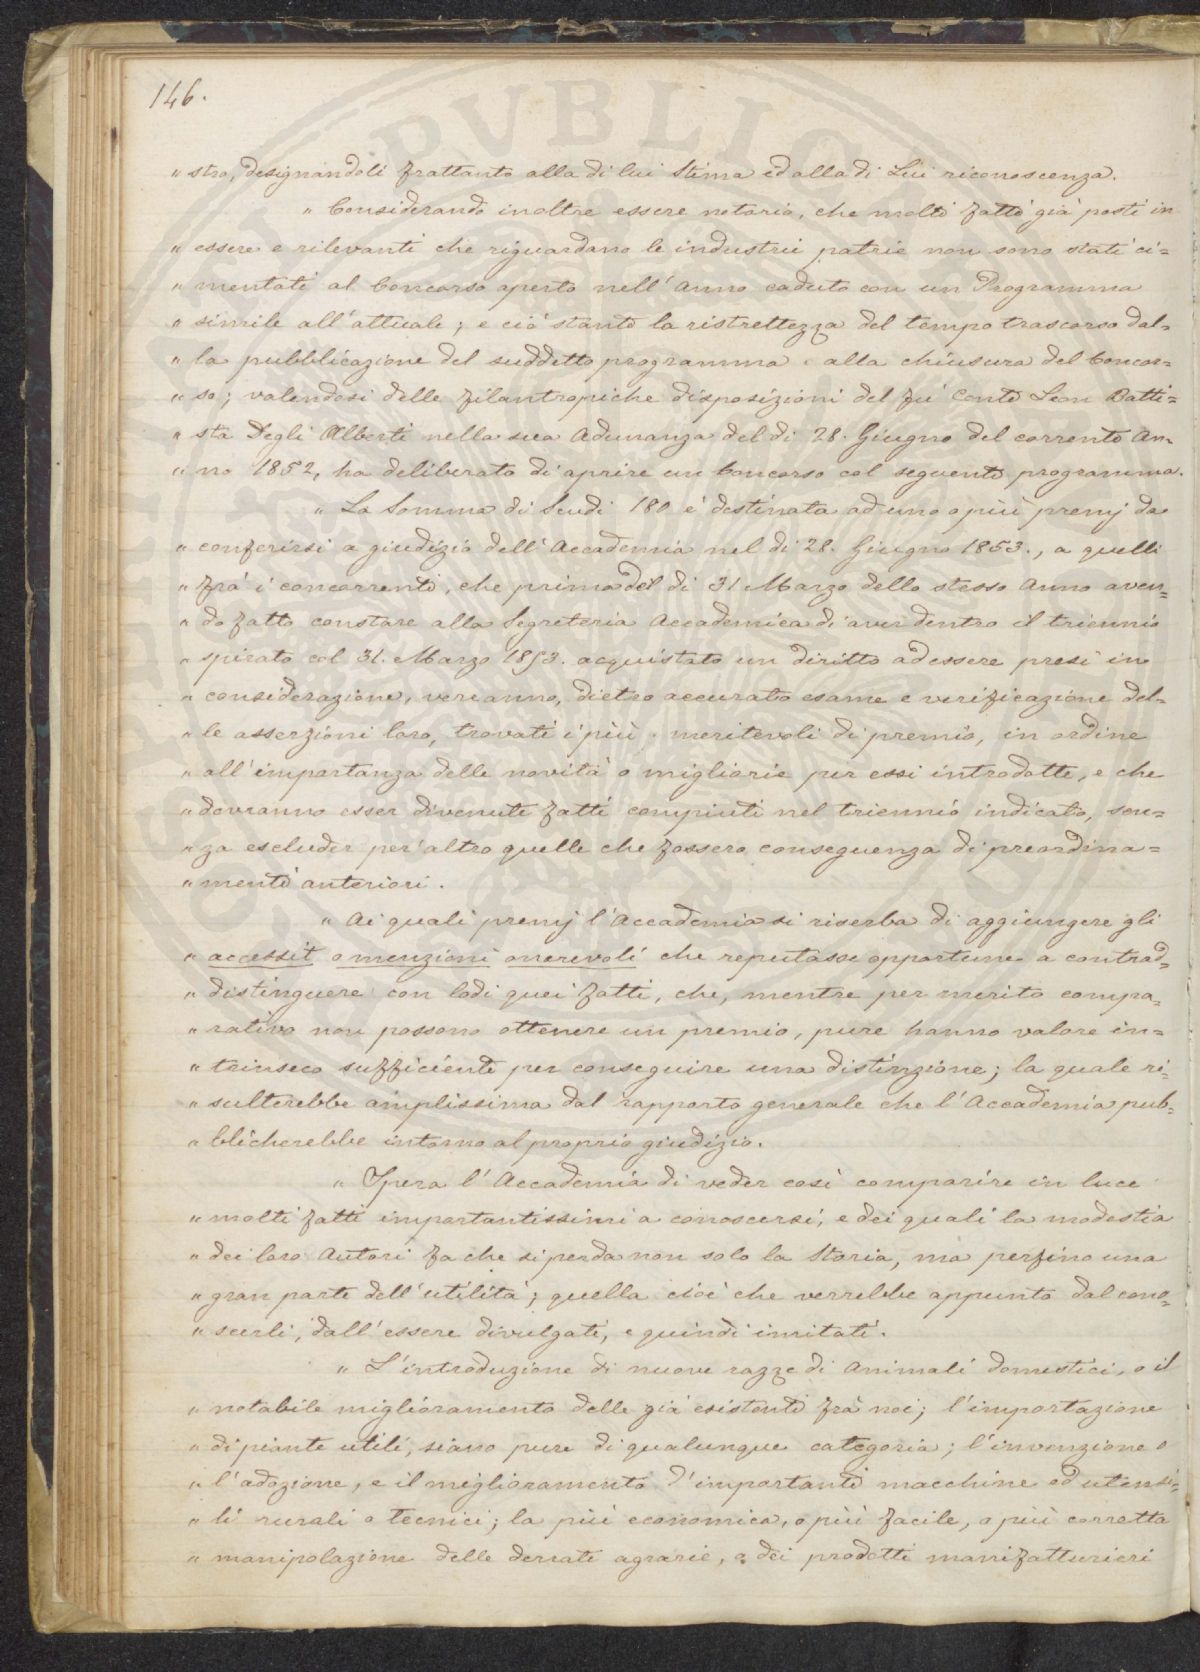 146.
" stro, designandoli frattanto alla di lui stima ed alla di Lui riconoscenza.
" Considerando inoltre essere notorio, che molti fatti già posti in
" essere e rilevanti che riguardano le industrie patrie non sono stati ci=
" mentati al Concorso aperto nell'anno caduto con un Programma
" simile all'attuale; e ciò stante la ristrettezza del tempo trascorso dal=
" la pubblicazione del suddetto programma alla chiusura del Concor=
" so; valendosi delle filantropiche disposizioni del fù Conte Leon Batti=
" sta Degli Alberti nella sua Adunanza del dì 28. Giugno del corrente An=
" no 1852, ha deliberato di aprire un Concorso col seguente programma.
" La Somma di Scudi 180 è destinata ad uno o più premj da
" conferirsi a giudizio dell'Accademia nel dì 28. Giugno 1853., a quelli
" frà i concorrenti, che prima del dì 31 Marzo dello stesso Anno aven=
" do fatto constare alla Segreteria Accademica di aver dentro il triennio
" spirato col 31. Marzo 1853. acquistato un diritto ad essere presi in
" considerazione, verranno, dietro accurato esame e verificazione del=
" le asserzioni loro, trovati i più meritevoli di premio, in ordine
" all'importanza delle novità o migliorie per essi introdotte, e che
" dovranno esser divenute fatti compiuti nel triennio indicato, sen=
" za escluder per altro quelle che fossero conseguenza di preordina=
" menti anteriori.
" Ai quali premj l'Accademia si riserba di aggiungere gli
" accessit o menzioni onorevoli che reputasse opportune a contrad=
" distinguere con lodi quei fatti, che, mentre per merito compa=
" rativo non possono ottenere un premio, pure hanno valore in=
" trinseco sufficiente per conseguire una distinzione; la quale ri=
" sulterebbe amplissima dal rapporto generale che l'Accademia pub=
" blicherebbe intorno al proprio giudizio.
" Spera l'Accademia di veder così comparire in luce
" molti fatti importantissimi a conoscersi, e dei quali la modestia
" dei loro Autori fa che si perda non solo la Storia, ma perfino una
" gran parte dell'utilità; quella cioè che verrebbe appunto dal cono=
" scerli, dall'essere divulgati, e quindi imitati.
" L'introduzione di nuove razze di Animali domestici, o il
" notabile miglioramento delle già esistenti frà noi; l'importazione
" di piante utili, siano pure di qualunque categoria; l'invenzione o
" l'adozione, e il miglioramento d'importanti macchine ed utensi=
" li rurali o tecnici; la più economica, o più facile, o più corretta
" manipolazione delle derrate agrarie, o dei prodotti manifatturieri